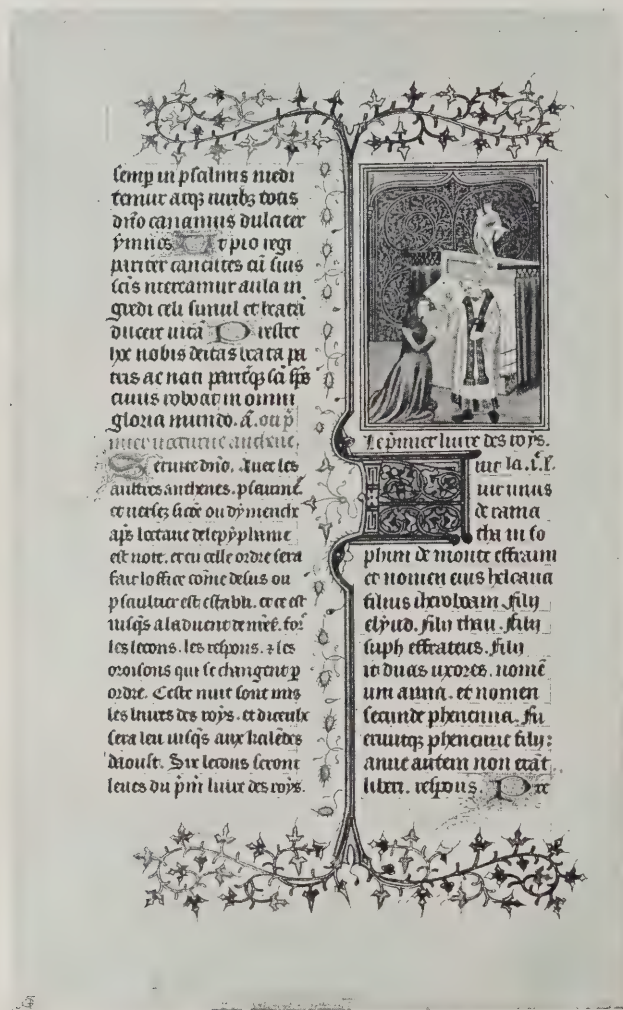 semp in psalmis medi
temur atq; viribz totis
dño canamus dulciter
ymnos Ut pio regi
pariter canentes cū suis
scīs mereamur aula in
gredi celi simul et beatā
ducere uitā Prestet
hoc nobis deitas beata pa
tris ac nati pariterq; sci sps
cuius reboat in omni
gloria mundo. a. ou p̄
mier nocturne antiene,
Seruite dño. Auec les
autres anthenes. pseaume.
et uersez sicōe ou dymenche
aps loctaue de lepyphanie
est note. et en celle ordre sera
fait loffice cōme desus ou
psaultier est establi. et ce est
iusqs a laduent de nr̄e s̄. fors
les lecons. les respons. z les
oroisons qui se changent p
ordre. Ceste nuit sont mis
les liures des roys. et diceulx
sera leu iusqs aux kalēdes
daoust. Six lecons seront
leues du pm liure des roys.
Le p̄mier liure des roys.
uir la. i. l.
uir unus
de rama
tha in so
phim de monte effraim
et nomen eius helcana
filius iheroboam. filij
elyud. filij thau. filij
suph effrateus. Filij
it duas uxores. nomē
uni anna. et nomen
secunde phenenna. Fu
eruntq; phenenne filij:
anne autem non erāt
liberi. respons. Pre